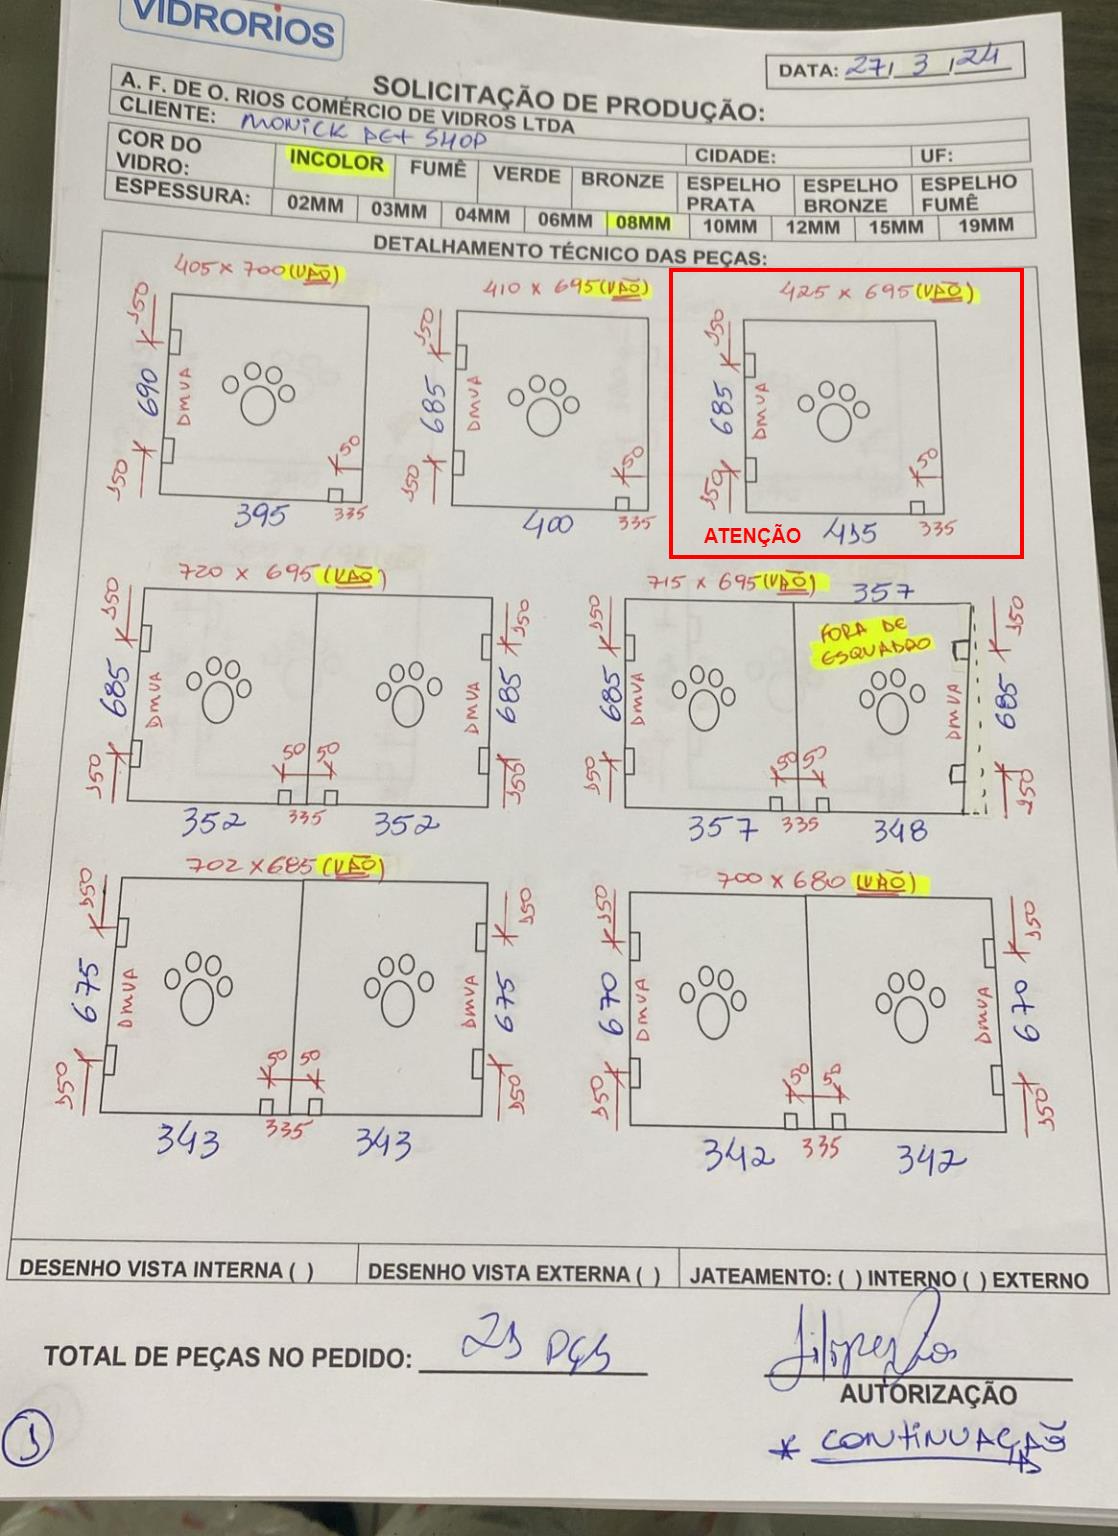 VIDRORIOS
DATA: 27/3/24
SOLICITAÇÃO DE PRODUÇÃO:
A. F. DE O. RIOS COMÉRCIO DE VIDROS LTDA
CLIENTE: MONICK PET SHOP
CIDADE: UF:
COR DO VIDRO: INCOLOR FUMÊ VERDE BRONZE ESPELHO PRATA ESPELHO BRONZE ESPELHO FUMÊ
ESPESSURA: 02MM 03MM 04MM 06MM 08MM 10MM 12MM 15MM 19MM
DETALHAMENTO TÉCNICO DAS PEÇAS:
405 x 700 (VÃO)
150
690
DMVA
150
50
395
335
410 x 695 (VÃO)
150
685
DMVA
150
50
400
335
425 x 695 (VÃO)
150
685
DMVA
150
50
ATENÇÃO
415
335
720 x 695 (VÃO)
150
150
685
DMVA
DMVA
685
150
50
50
150
352
335
352
715 x 695 (VÃO)
357
150
FORA DE
ESQUADRO
150
685
DMVA
DMVA
685
150
50
50
150
357
335
348
702 x 685 (VÃO)
150
150
675
DMVA
DMVA
675
150
50
50
150
343
335
343
700 x 680 (VÃO)
150
150
670
DMVA
DMVA
670
150
50
50
150
342
335
342
DESENHO VISTA INTERNA ( ) DESENHO VISTA EXTERNA ( ) JATEAMENTO: ( ) INTERNO ( ) EXTERNO
TOTAL DE PEÇAS NO PEDIDO: 21 PÇS
AUTORIZAÇÃO
* CONTINUAÇÃO
1